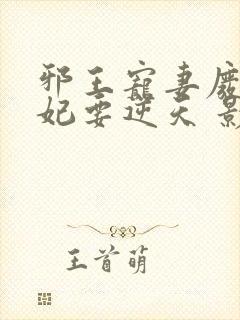 邪王寵妻廢
妃要逆天
王首萌